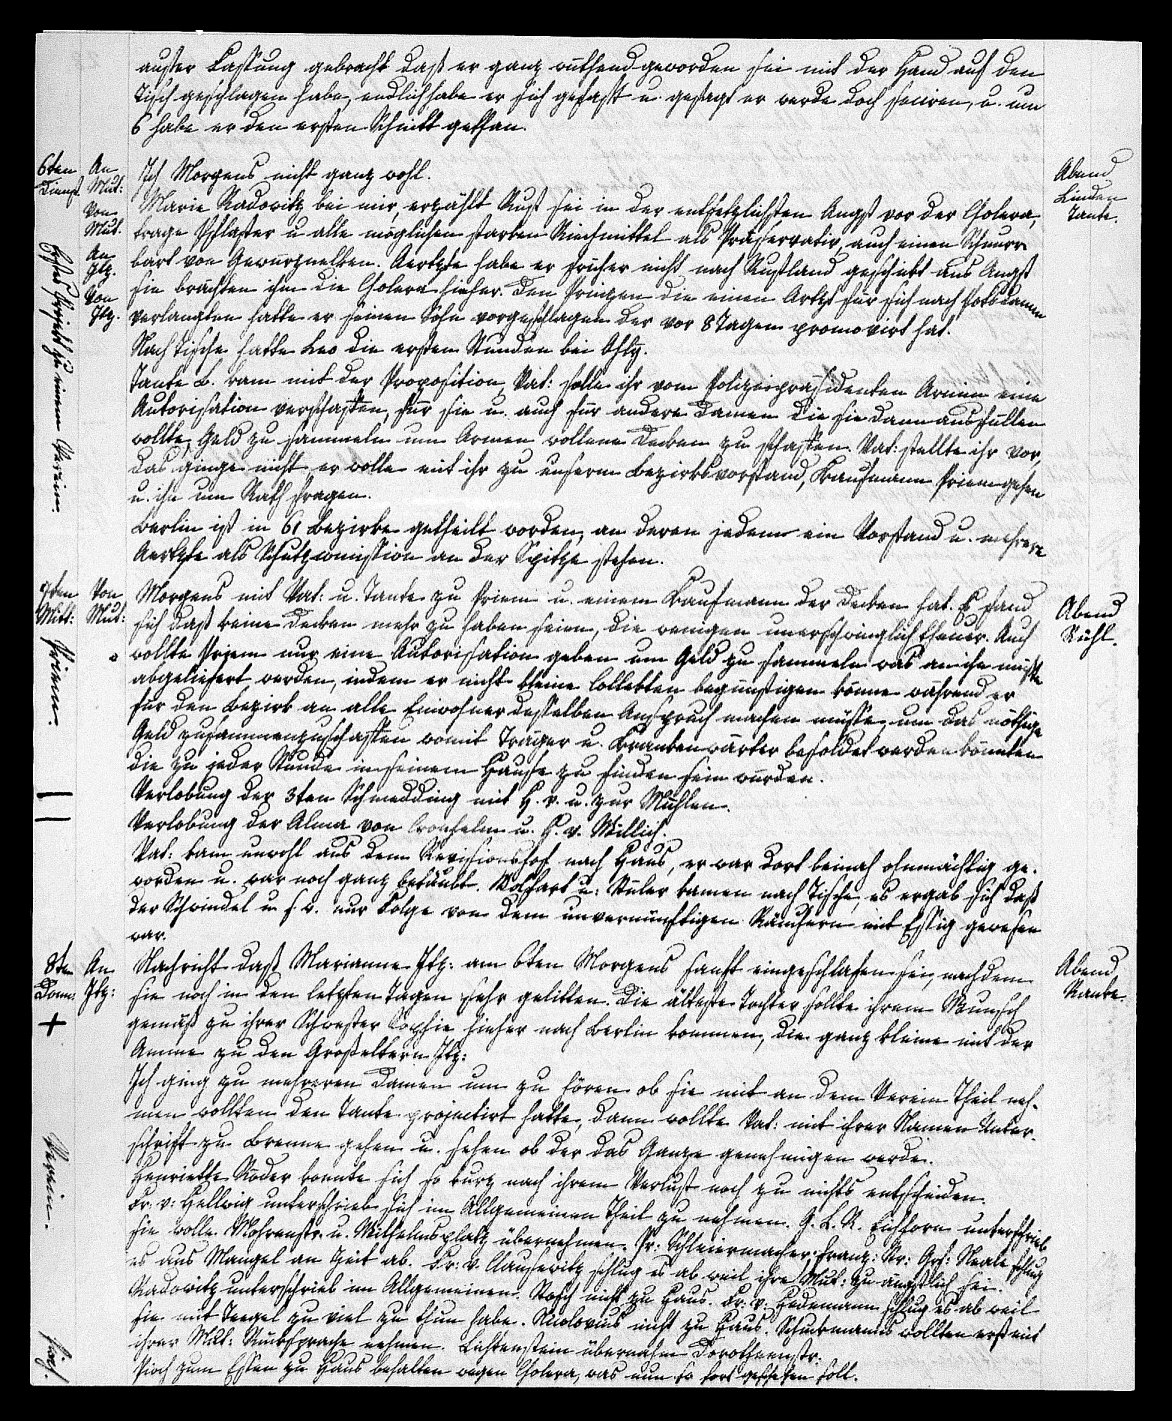 außer Fassung gebracht daß er ganz wüthend geworden sei mit der Hand auf den
Tisch geschlagen habe, endlich habe er sich gefasst u. gesagt er werde doch seciren, u. um
6 habe er den ersten Schnitt gethan.
6ten Dienst.
An Mut:
Von Mut.
An Itz.
Von Itz.
Erstes Projekt zu einem Verein.
Ich Morgens nicht ganz wohl.
Marie Radowitz bei mir, erzählt Rust sei in der entsetzlichsten Angst vor der Cholera,
trage Pflaster u alle möglichen starken Riechmittel als Präservativ, auch einen Schnurr-
bart von Gewürznelken. Aerzte habe er früher nicht nach Rußland geschickt aus Angst
sie brächten ihm die Cholera hieher. Den Prinzen die einen Artzt für sich nach Potsdamm
verlangten hatte er seinen Sohn vorgeschlagen der vor 8 Tagen promovirt hat.
Nach Tische hatte Leo die ersten Stunden bei Ohly.
Tante L. kam mit der Proposition Vat: solle ihr vom Polizeipräsidenten Arnim eine
Autorisation verschaffen, für sie u. auch für andere Damen die sie dann ausfüllen
wollte, Geld zu sammeln um Armen wollene Decken zu schaffen. Vat: stellte ihr vor,
das ginge nicht er wolle mit ihr zu unserm Bezirksvorstand, Kaufmann Priem gehen
u. ihn um Rath fragen.
Berlin ist in 61 Bezirke getheilt worden, an deren jedem ein Vorstand u. mehrere
Aerzte als Schutzcomission an der Spitze stehen.
Abend Linden Tante.
7ten Mitt:
Von Mut:
Priem.
Morgens mit Vat: u. Tante zu Priem u. einem Kaufmann der Decken hat. Es fand
sich daß keine Decken mehr zu haben seien, die wenigen unerschwinglich theuer. Auch
wollte Priem nur eine Autorisation geben um Geld zu sammeln was an ihn müßte
abgeliefert werden, indem er nicht kleine Collekten begünstigen könne während er
für den Bezirk an alle Einwohner desselben Anspruch machen müsse, um das nöthige
Geld zusammenzuschaffen womit Träger u. Krankenwärter besoldet werden könnten
die zu jeder Stunde in seinem Hause zu finden sein würden.
Verlobung der 3ten Schmedding mit H. v. u. zur Mühlen.
Verlobung der Alma von u. H. v. Willich.
Vat: kam unwohl aus dem Revisionshof nach Haus, er war dort beinah ohnmächtig ge-
worden u. war noch ganz betäubt. Wolfart u: Stüler kamen nach Tische, es ergab sich daß
der Schwindel u s. w. nur Folge von dem unvernünftigen Räuchern mit Essig gewesen
war.
Abend Stühl.
8ten Donn:
An Itz:
+
Nachricht daß Marianne Itz: am 6ten Morgens sanft eingeschlafen sei, nachdem
sie noch in den letzten Tagen sehr gelitten. Die älteste Tochter sollte ihrem Wunsch
gemäß zu ihrer Schwester Sophie hieher nach Berlin kommen, die ganz kleine mit der
Amme zu den Großeltern Itz:
Ich ging zu mehreren Damen um zu hören ob sie mit an dem Verein Theil neh-
men wollten den Tante projectirt hatte, dann wollte Vat: mit ihrer Namen Unter-
schrift zu Brenne gehen u. sehen ob der das Ganze genehmigen werde.
Henriette Röder konnte sich so kurz nach ihrem Verlust noch zu nichts entscheiden.
Fr. v: Hellwig unterschrieb sich im Allgemeinen Theil zu nehmen. G. L. R. Eichhorn unterschrieb
sie wolle Mohrenstr. u. Wilhelmsplatz übernehmen. Fr: Schleiermacher, Franz: Str: Grf: Neale schlug
es aus Mangel an Zeit ab. Fr: v. Clausewitz schlug es ab weil ihre Mut: zu ängstlich sei.
Radowitz unterschrieb im Allgemeinen. nicht zu Haus. Fr: v: Hedemann schlug es ab weil
sie mit Tegel zu viel zu thun habe. Nicolovius nicht zu Haus. Schuckmanns wollten erst mit
ihrer Mut: Rücksprache nehmen. Lichtenstein übernahm Dorotheenstr.
zum Essen zu Haus behalten wegen Cholera, was nun so fort geschehen soll.
Abend Ranke.
Verein.